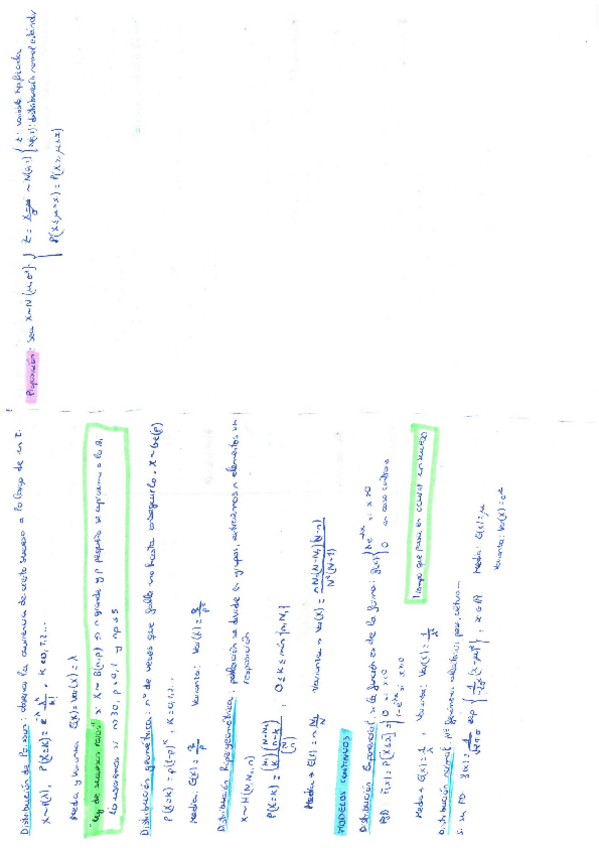 Distribución de Poisson: observa la ocurrencia de cierto suceso a lo largo de un t.
X~P(λ), P(X=k) = e^-λ λ^k/k!, k=0,1,2...
Media y varianza E(X)=Var(X)=λ
"ley de sucesos raros" X~B(n,p) → n grande y p pequeño se aproxima a la P,
lo usaremos si n>30, p<0,1 y np≤5
Distribución geométrica: nº de veces que fallo hasta conseguirlo. X~Ge(p)
P(X=k) = p(1-p)^k, k=0,1,2...
Media: E(X)=q/p Varianza: Var(X)=q/p²
Distribución hipergeométrica: población se divide en grupos, extraemos n elementos sin
reposición
X~H(N,N₁,n)
P(X=k) = (N₁ k)(N-N₁ n-k)/(N n), 0≤k≤min{n,N₁}
Media → E(X)=n N₁/N varianza → Var(X)= nN₁(N-N₁)(N-n)/N²(N-1)
MODELOS CONTINUOS
Distribución Exponencial: si la función es de la forma: f(x) { λe^-λx si x>0
0 en caso contrario
F(x)=P[X≤x] { 0 si x<0
1-e^-λx si x>0
Media → E(X)=1/λ, Varianza: Var(X)=1/λ²
Tiempo que pasa en ocurrir un suceso
Distribución normal: nº fenómenos aleatorios
si su FD f(x)= 1/√2πσ exp{-1/2σ²(x-μ)²}, x∈R Media: E(X)=μ
Varianza: Var(X)=σ²
Proposición: Sea X~N(μ,σ²) } Z= X-μ/σ ~N(0,1) { Z: variable tipificada
N(0,1): distribución normal estándar
P(X≤μ-x) = P(X≥μ+x)